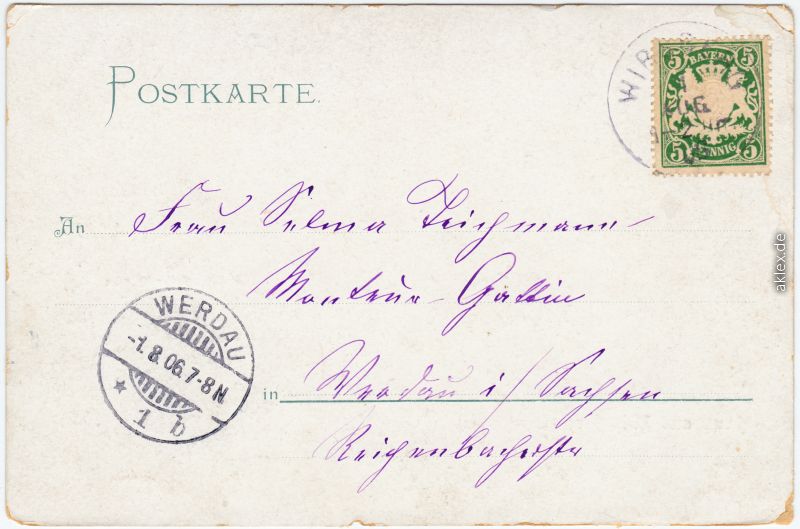 POSTKARTE.
5 BAYERN 5
5 PFENNIG 5
An Frau Selma Teichmann
Monteur-Gattin
WERDAU
-1.8.06.7-8N
* 1 b
in Werdau i/Sachsen
Reichenbacherstr
aklex.de